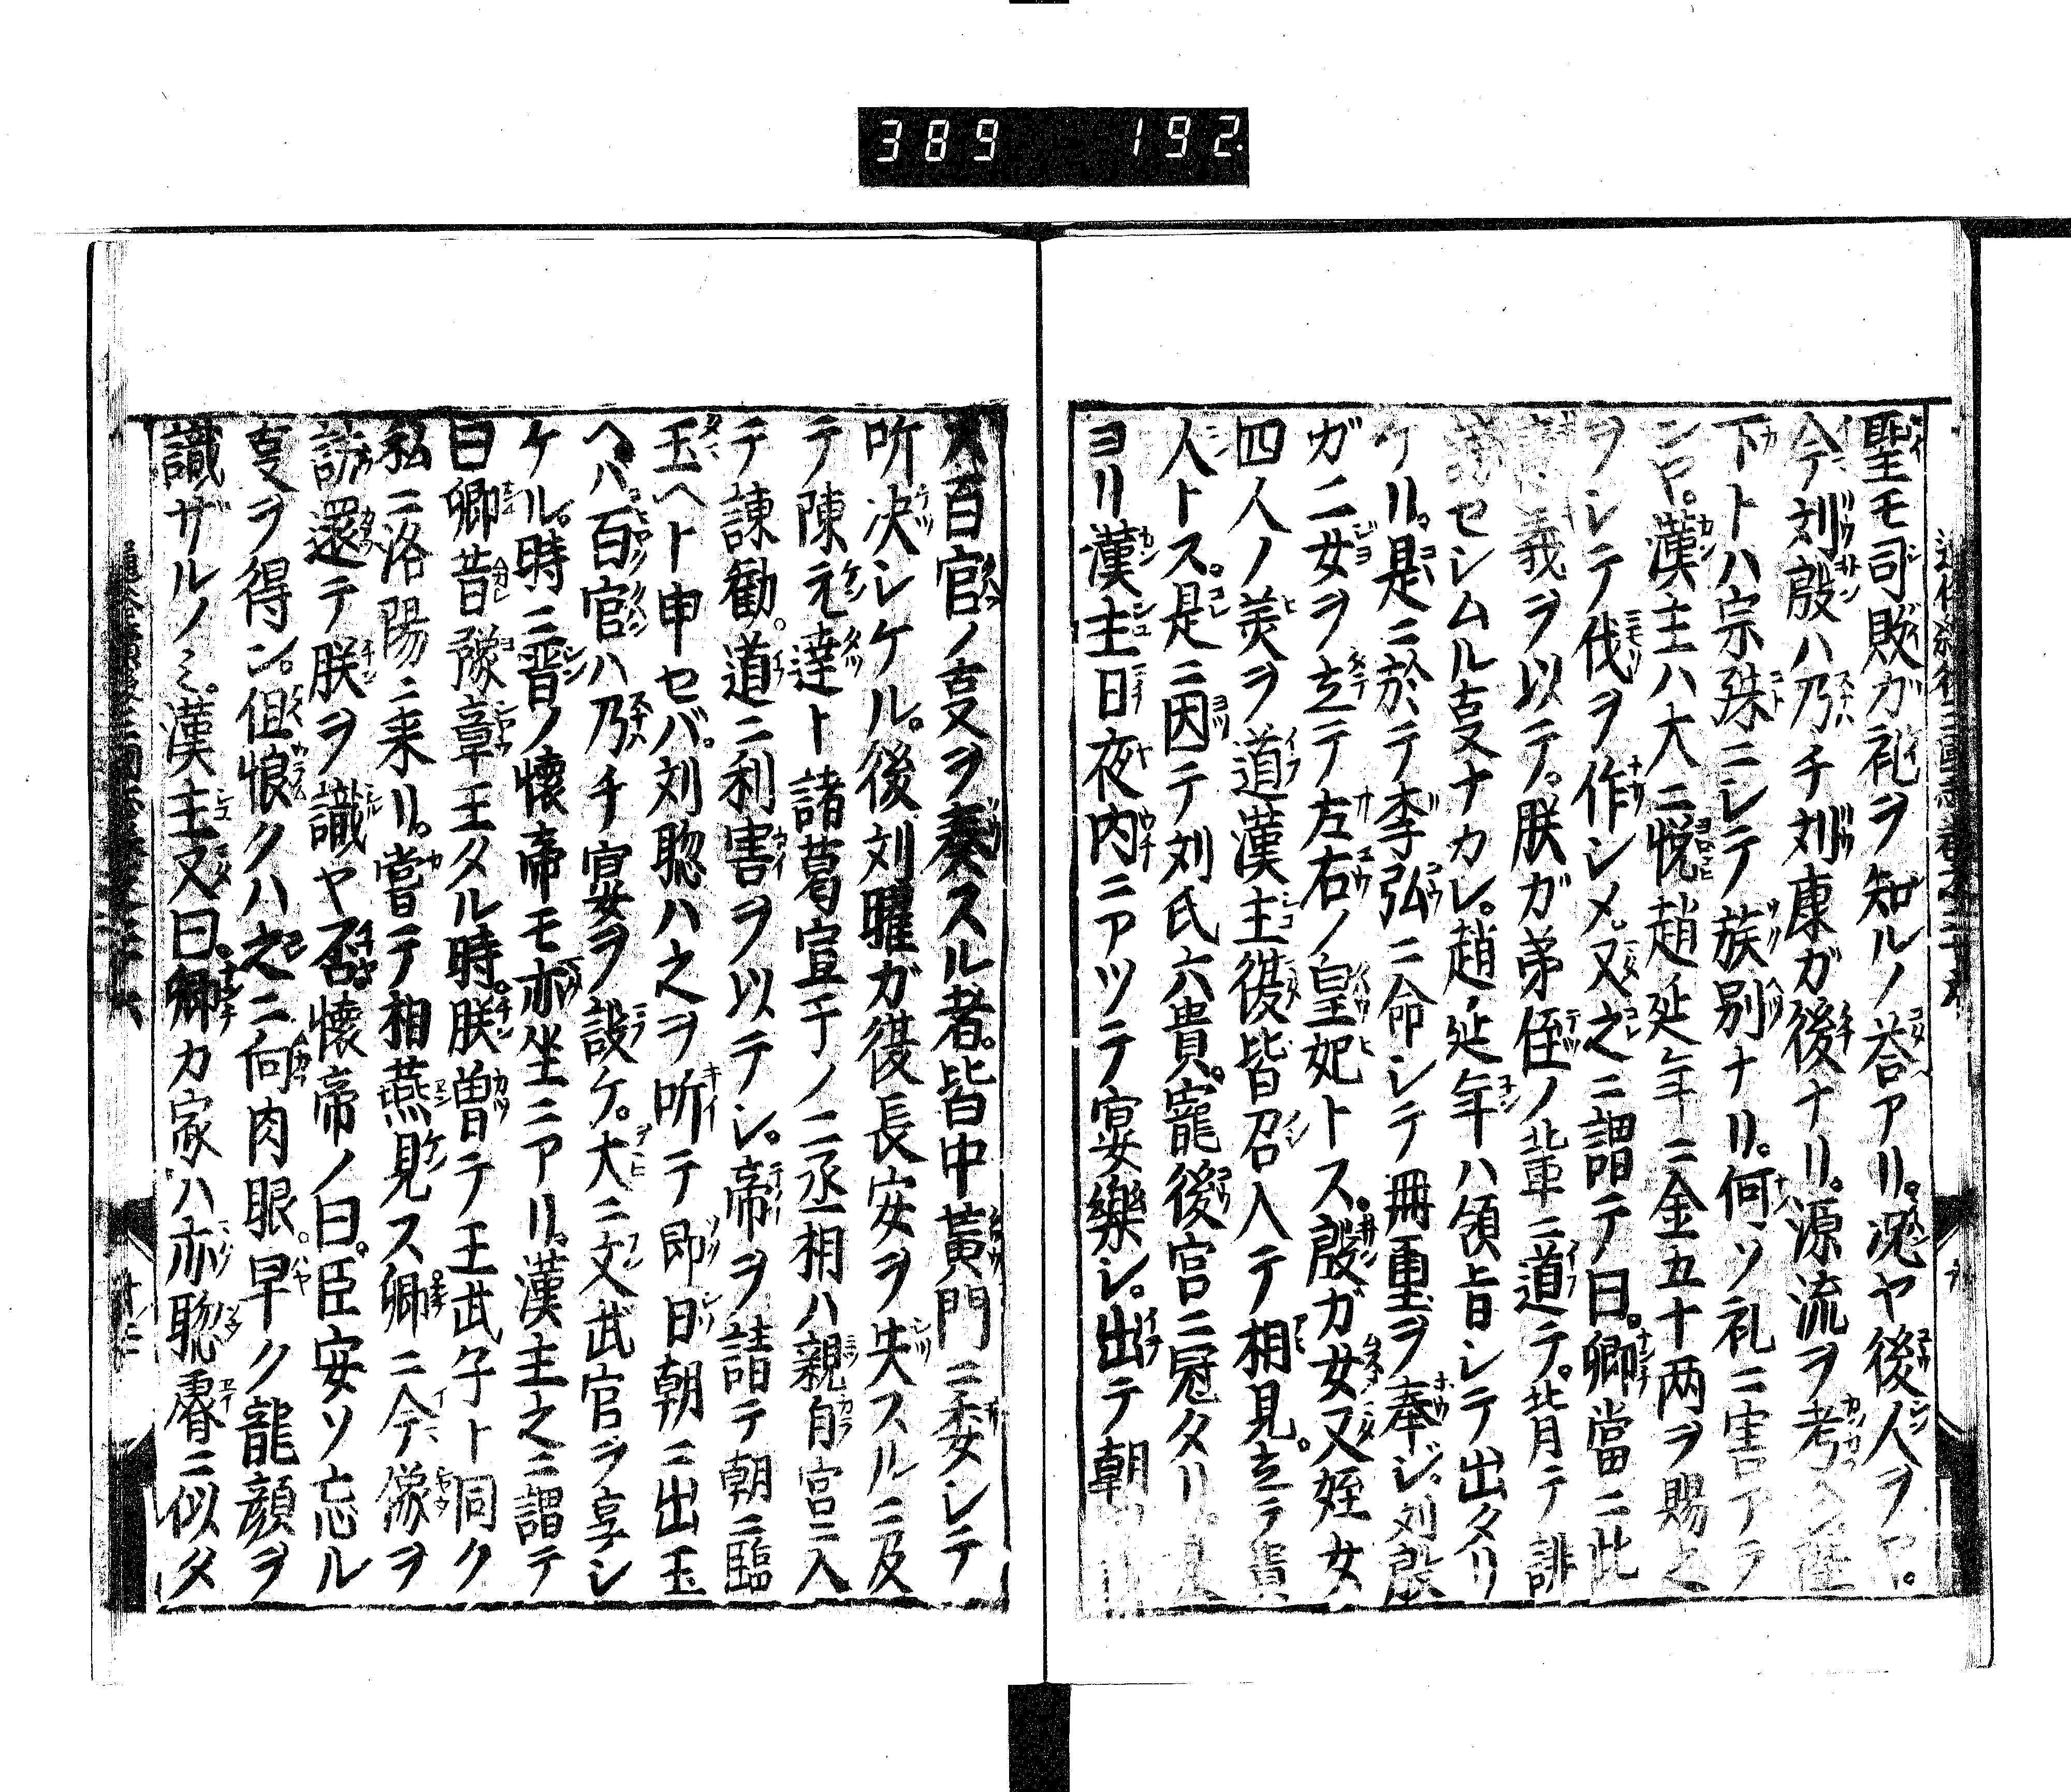 389 192
聖モ司敗ガ礼ヲ知ルノ荅アリ。况ヤ後人ヲヤ。
今刘殷ハ乃チ刘康ガ後ナリ。源流ヲ考ヘン陛
下トハ宗殊ニシテ族別ナリ。何ソ礼ニ害アラ
ンヤ。漢主ハ大ニ悦趙延年ニ金五十两ヲ賜之
ヲシテ伐ヲ作シメ。又之ニ謂テ曰。卿當ニ此
義ヲ以テ。朕ガ弟侄ノ輩ニ道テ。背テ誹
セシムル叓ナカレ。趙延年ハ領旨シテ出タリ
ケリ。是ニ於テ李弘ニ命シテ冊重ヲ奉ジ。刘殷
ガ二女ヲ立テ左右ノ皇妃トス。殷ガ女又姪女
四人ノ美ヲ道漢主復皆召入テ相見。立テ貴
人トス。是ニ因テ刘氏六貴。寵後宮ニ冠タリ
ヨリ漢主日夜内ニアツテ宴樂シ。出テ朝
ス百官ノ叓ヲ奏スル者。皆中黃門ニ委シテ
听决シケル。後刘曜ガ復長安ヲ失スルニ及
テ陳元達ト諸葛宣于ノ二丞相ハ親自宮ニ入
テ諫勸。道ニ利害ヲ以テシ。帝ヲ請テ朝ニ臨
玉ヘト申セバ。刘聡ハ之ヲ听テ即日朝ニ出玉
ヘバ。百官ハ乃チ宴ヲ設ケ。大ニ文武官ヲ享シ
ケル。時ニ晋ノ懐帝モ亦坐ニアリ。漢主之ニ謂テ
曰卿昔豫章王タル時。朕曽テ王武子ト同ク
私ニ洛陽ニ来リ。嘗テ相燕見ス卿ニ今像ヲ
訪還テ朕ヲ識ヤ否。懐帝ノ曰。臣安ソ忘ル
叓ヲ得ン。但恨クハ之ニ向肉眼。早ク龍顔ヲ
識ザルノミ。漢主又曰。卿カ家ハ亦聡睿ニ似タ